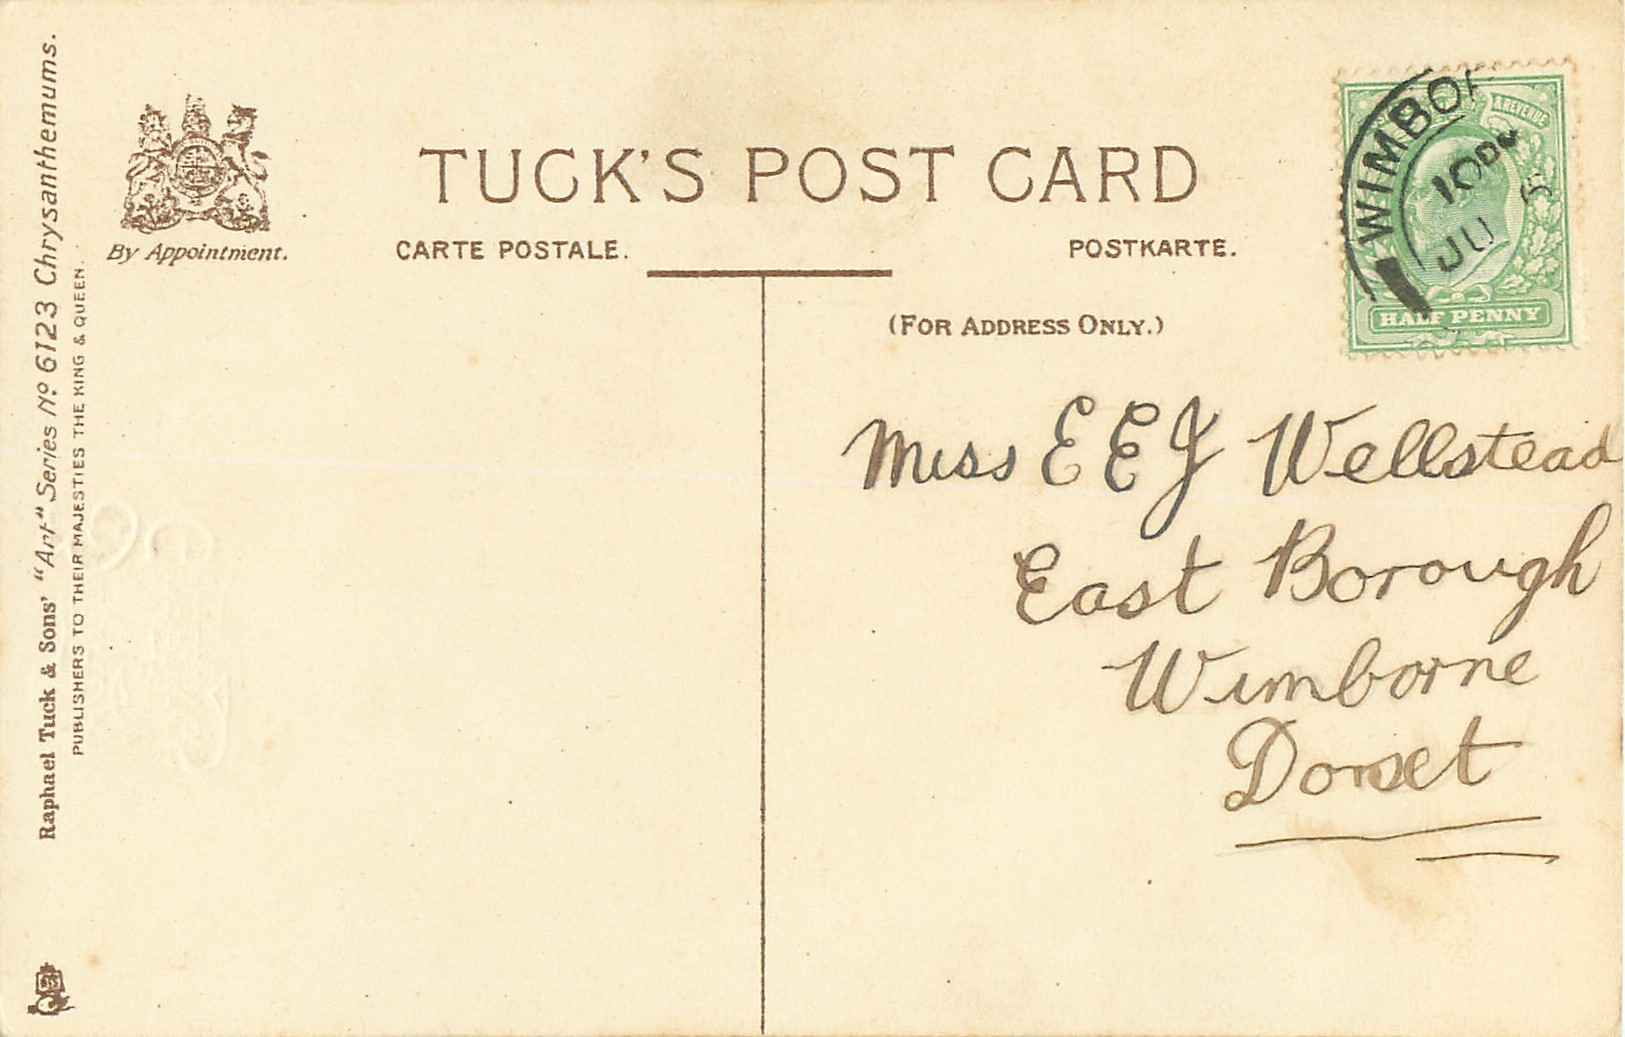 Raphael Tuck & Sons' "Art" Series No 6123 Chrysanthemums.
PUBLISHERS TO THEIR MAJESTIES THE KING & QUEEN.
By Appointment.
TUCK'S POST CARD
CARTE POSTALE.
POSTKARTE.
(FOR ADDRESS ONLY.)
& REVENUE
HALF PENNY
10 PM
JU
Miss E E J Wellstead
East Borough
Wimborne
Dorset